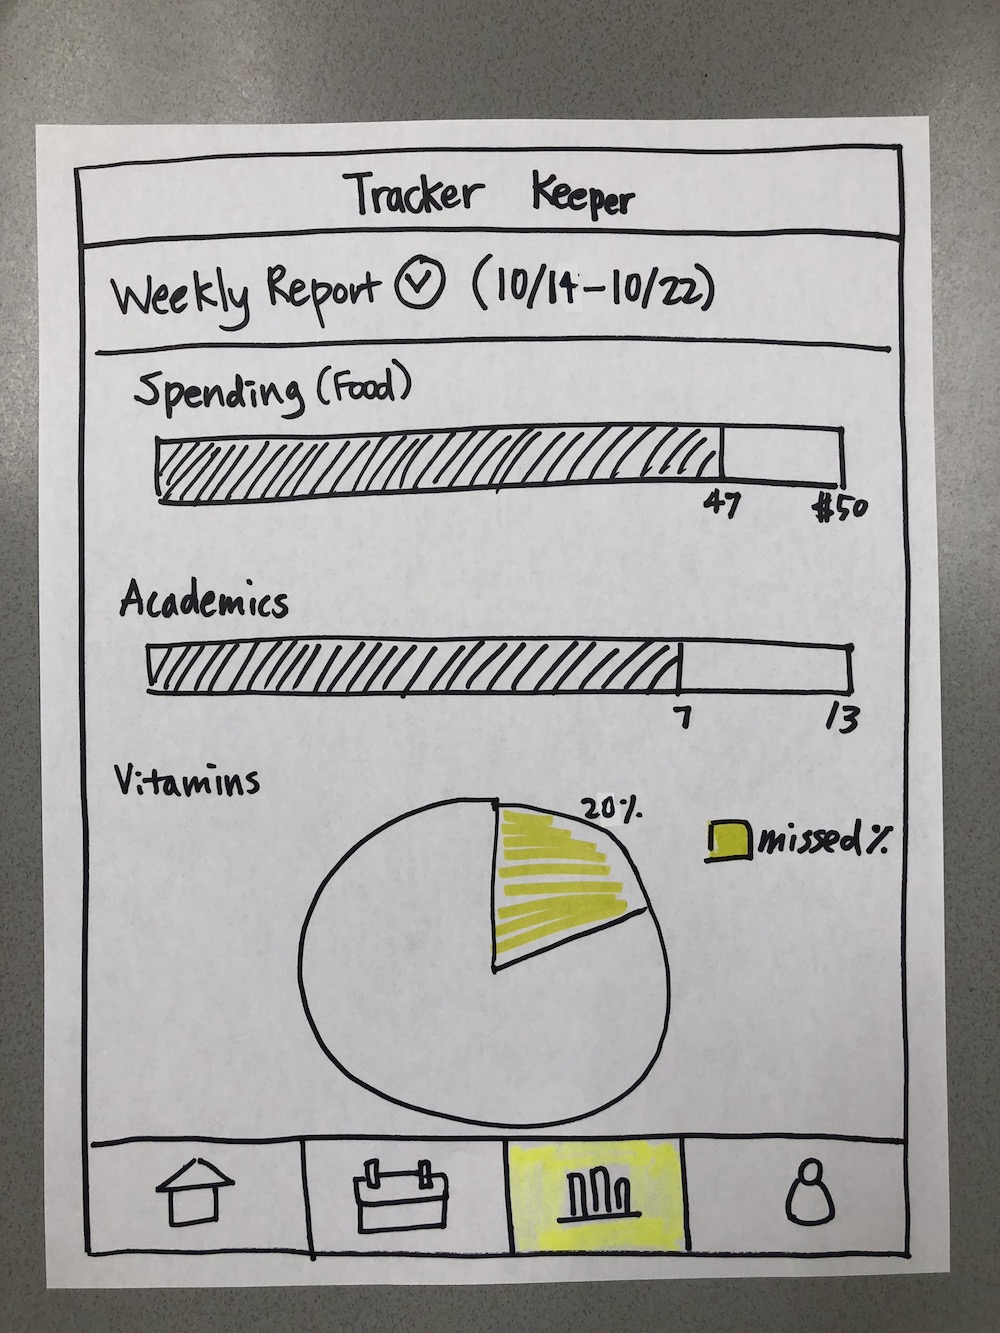 Tracker Keeper
Weekly Report (10/14-10/22)
Spending (Food)
47 $50
Academics
7 13
Vitamins
20%
missed%